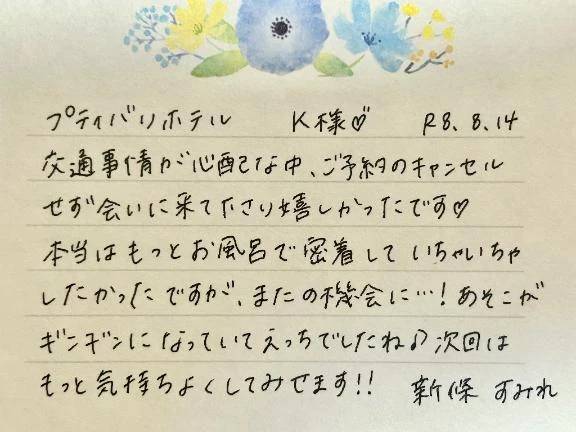 プティバリホテル K様♡ R8.8.14
交通事情が心配な中、ご予約のキャンセル
せず会いに来て下さり嬉しかったです♡
本当はもっとお風呂で密着していちゃいちゃ
したかったですが、またの機会に…！あそこが
ギンギンになっていてえっちでしたね♪次回は
もっと気持ちよくしてみせます!! 新條 すみれ